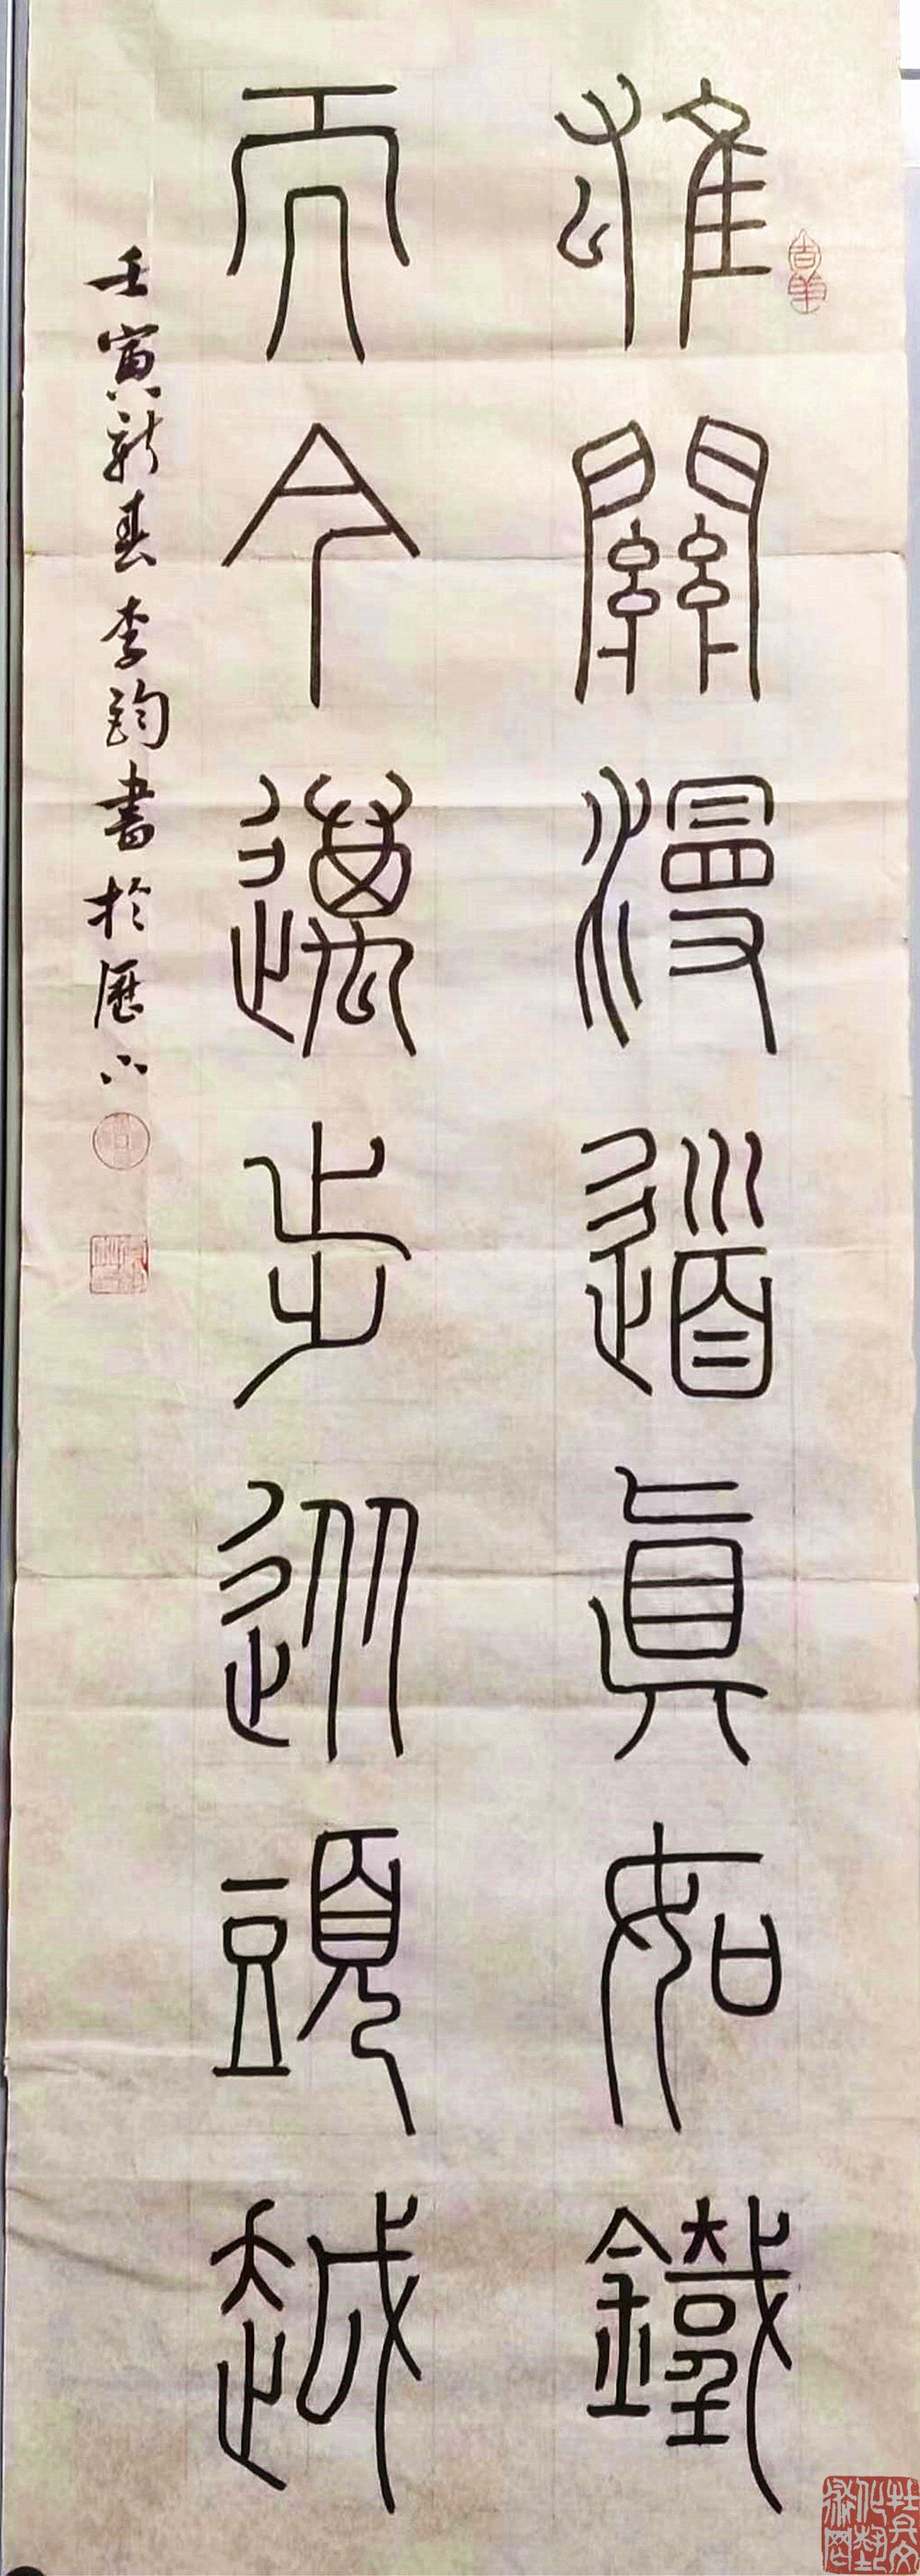 雄關漫道真如鐵
而今邁步從頭越
壬寅新春李鈞書於歷下